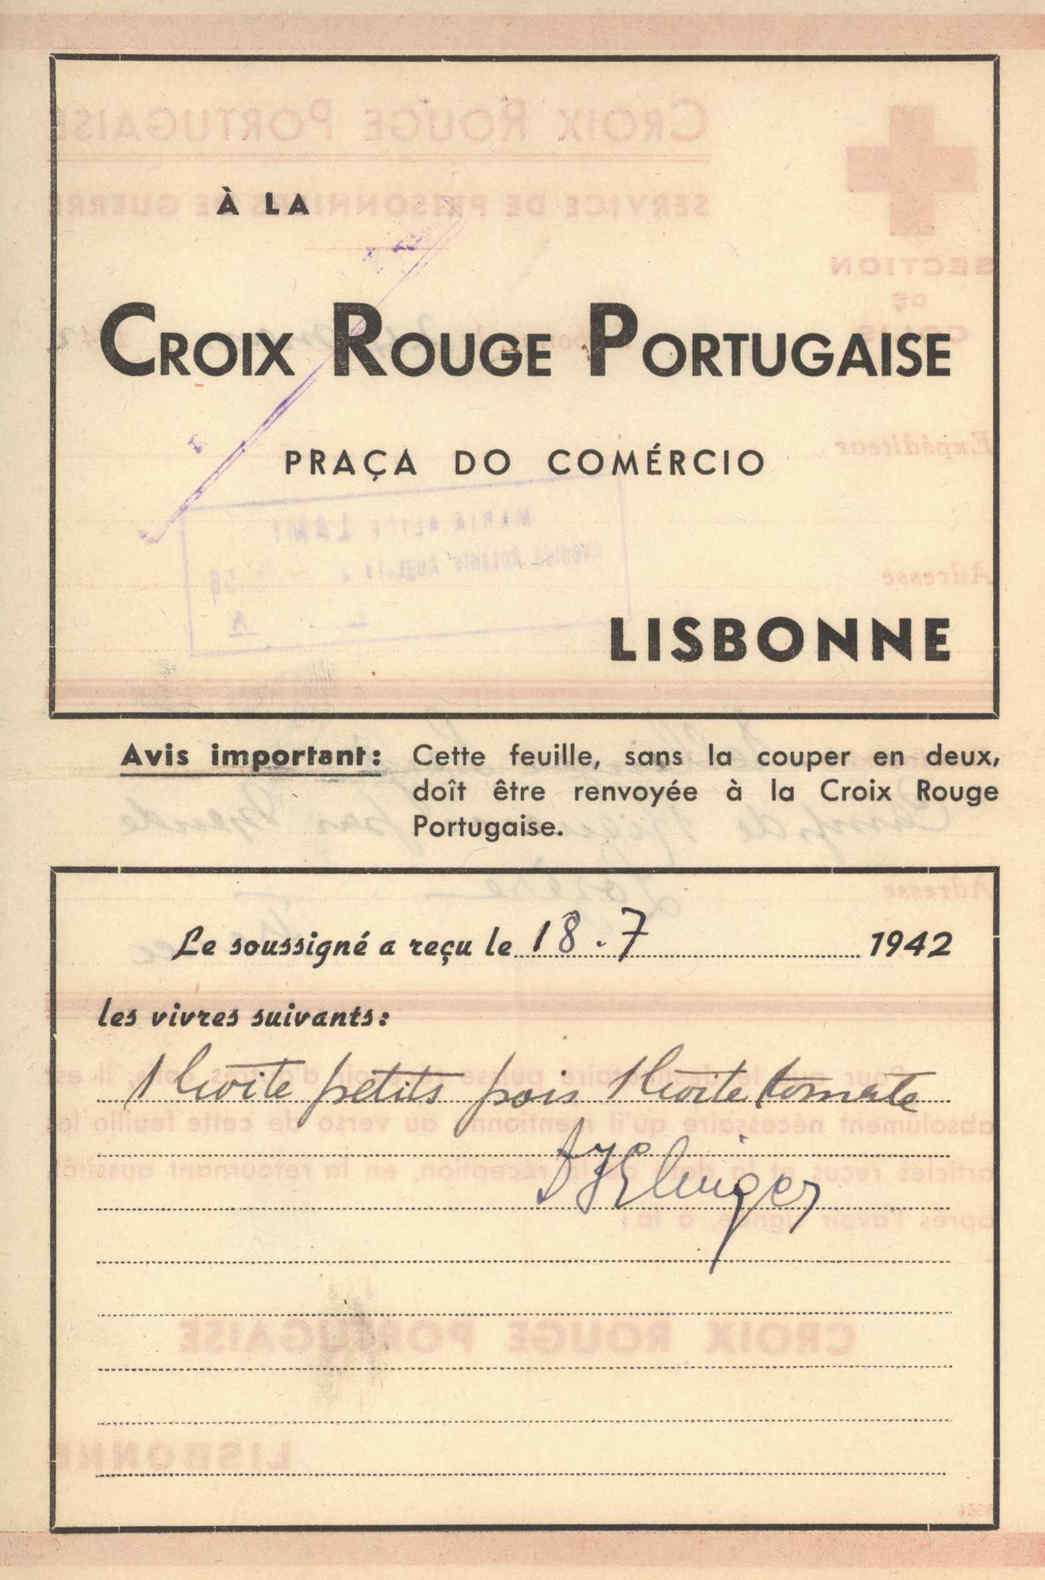 À LA
CROIX ROUGE PORTUGAISE
PRAÇA DO COMÉRCIO
LISBONNE
Avis important: Cette feuille, sans la couper en deux,
doît être renvoyée à la Croix Rouge
Portugaise.
Le soussigné a reçu le 18.7 1942
les vivres suivants:
1 boite petits pois 1 boite tomate